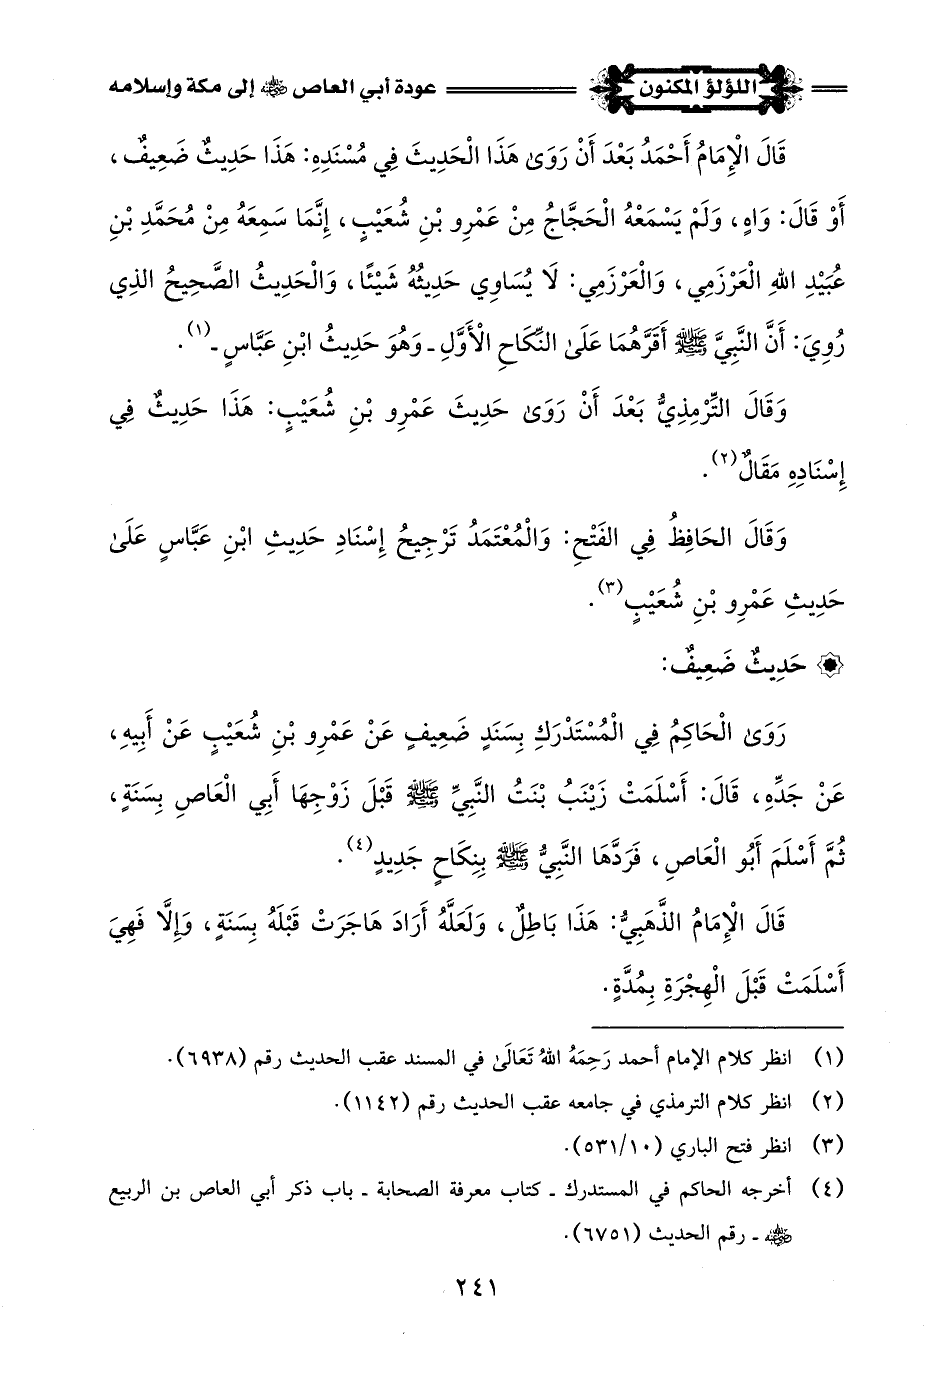 اللؤلؤ المكنون عودة أبي العاص رضي الله عنه إلى مكة وإسلامه
قَالَ الْإِمَامُ أَحْمَدُ بَعْدَ أَنْ رَوَىٰ هَذَا الْحَدِيثَ فِي مُسْنَدِهِ: هَذَا حَدِيثٌ ضَعِيفٌ،
أَوْ قَالَ: وَاهٍ، وَلَمْ يَسْمَعْهُ الْحَجَّاجُ مِنْ عَمْرِو بْنِ شُعَيْبٍ، إِنَّمَا سَمِعَهُ مِنْ مُحَمَّدِ بْنِ
عُبَيْدِ اللهِ الْعَرْزَمِي، وَالْعَرْزَمِي: لَا يُسَاوِي حَدِيثُهُ شَيْئًا، وَالْحَدِيثُ الصَّحِيحُ الذِي
رُوِيَ: أَنَّ النَّبِيَّ ﷺ أَقَرَّهُمَا عَلَىٰ النِّكَاحِ الْأَوَّلِ ـ وَهُوَ حَدِيثُ ابْنِ عَبَّاسٍ ـ(١).
وَقَالَ التِّرْمِذِيُّ بَعْدَ أَنْ رَوَىٰ حَدِيثَ عَمْرِو بْنِ شُعَيْبٍ: هَذَا حَدِيثٌ فِي
إِسْنَادِهِ مَقَالٌ(٢).
وَقَالَ الحَافِظُ فِي الفَتْحِ: وَالْمُعْتَمَدُ تَرْجِيحُ إِسْنَادِ حَدِيثِ ابْنِ عَبَّاسٍ عَلَىٰ
حَدِيثِ عَمْرِو بْنِ شُعَيْبٍ(٣).
حَدِيثٌ ضَعِيفٌ:
رَوَىٰ الْحَاكِمُ فِي الْمُسْتَدْرَكِ بِسَنَدٍ ضَعِيفٍ عَنْ عَمْرِو بْنِ شُعَيْبٍ عَنْ أَبِيهِ،
عَنْ جَدِّهِ، قَالَ: أَسْلَمَتْ زَيْنَبُ بْنَتُ النَّبِيِّ ﷺ قَبْلَ زَوْجِهَا أَبِي الْعَاصِ بِسَنَةٍ،
ثُمَّ أَسْلَمَ أَبُو الْعَاصِ، فَرَدَّهَا النَّبِيُّ ﷺ بِنِكَاحٍ جَدِيدٍ(٤).
قَالَ الْإِمَامُ الذَّهَبِيُّ: هَذَا بَاطِلٌ، وَلَعَلَّهُ أَرَادَ هَاجَرَتْ قَبْلَهُ بِسَنَةٍ، وَإِلَّا فَهِيَ
أَسْلَمَتْ قَبْلَ الْهِجْرَةِ بِمُدَّةٍ.
(١) انظر كلام الإمام أحمد رَحِمَهُ اللهُ تَعَالَىٰ في المسند عقب الحديث رقم (٦٩٣٨).
(٢) انظر كلام الترمذي في جامعه عقب الحديث رقم (١١٤٢).
(٣) انظر فتح الباري (٥٣١/١٠).
(٤) أخرجه الحاكم في المستدرك ـ كتاب معرفة الصحابة ـ باب ذكر أبي العاص بن الربيع
رضي الله عنه ـ رقم الحديث (٦٧٥١).
٢٤١